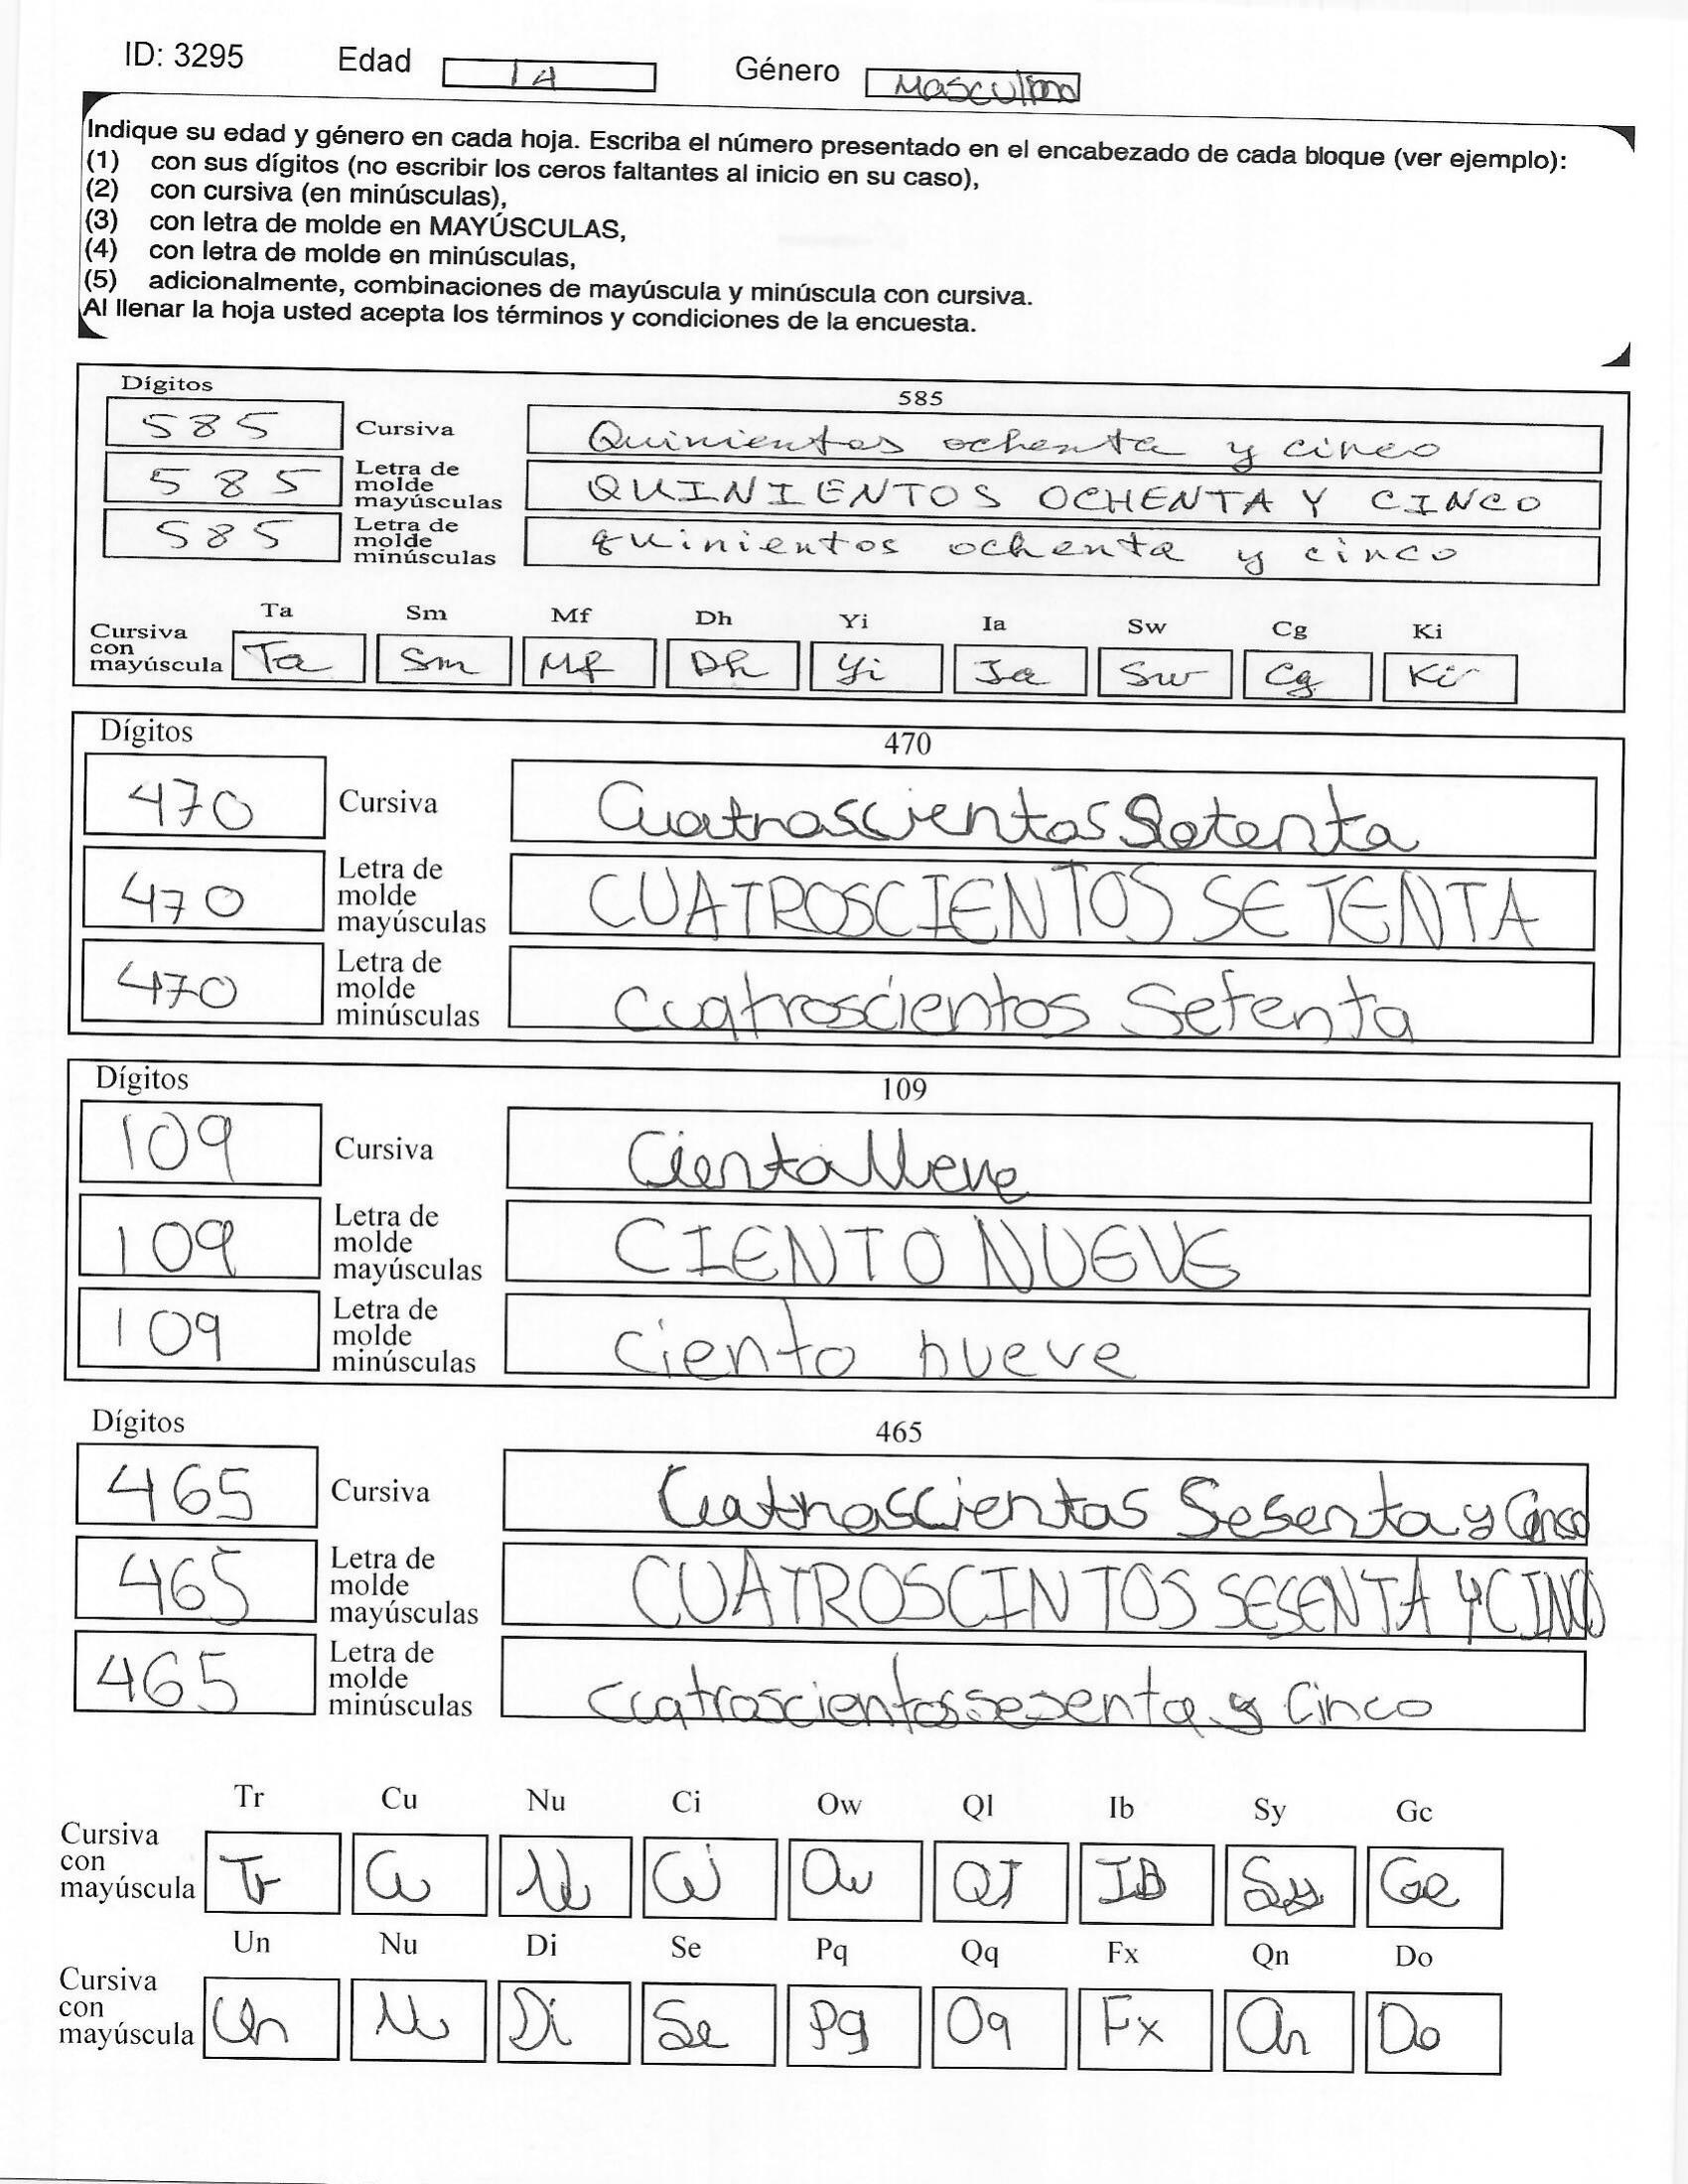 ID: 3295 Edad 14 Género Masculino
Indique su edad y género en cada hoja. Escriba el número presentado en el encabezado de cada bloque (ver ejemplo):
(1) con sus dígitos (no escribir los ceros faltantes al inicio en su caso),
(2) con cursiva (en minúsculas),
(3) con letra de molde en MAYÚSCULAS,
(4) con letra de molde en minúsculas,
(5) adicionalmente, combinaciones de mayúscula y minúscula con cursiva.
Al llenar la hoja usted acepta los términos y condiciones de la encuesta.
Dígitos 585
585 Cursiva Quinientos ochenta y cinco
585 Letra de molde mayúsculas QUINIENTOS OCHENTA Y CINCO
585 Letra de molde minúsculas quinientos ochenta y cinco
Ta Sm Mf Dh Yi Ia Sw Cg Ki
Cursiva con mayúscula Ta Sm Mf Dh Yi Ia Sw Cg Ki
Dígitos 470
470 Cursiva Cuatroscientos Setenta
470 Letra de molde mayúsculas CUATROSCIENTOS SETENTA
470 Letra de molde minúsculas cuatroscientos Setenta
Dígitos 109
109 Cursiva Ciento Nueve
109 Letra de molde mayúsculas CIENTO NUEVE
109 Letra de molde minúsculas ciento nueve
Dígitos 465
465 Cursiva Cuatroscientos Sesenta y Cinco
465 Letra de molde mayúsculas CUATROSCINTOS SESENTA Y CINCO
465 Letra de molde minúsculas cuatroscientos sesenta y Cinco
Tr Cu Nu Ci Ow Ql Ib Sy Gc
Cursiva con mayúscula Tr Cu Nu Ci Ow QI IB Sy Ge
Un Nu Di Se Pq Qq Fx Qn Do
Cursiva con mayúscula Un Nu Di Se Pq Oq Fx Qn Do